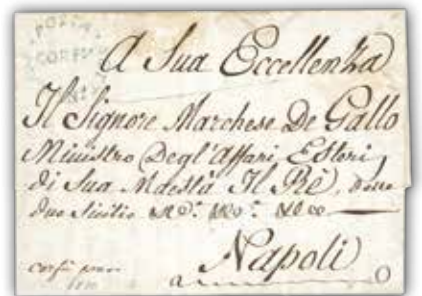 POSTA
CORFU
A Sua Eccellenza
Il Signore Marchese De Gallo
Ministro Degl'affari Esteri
di Sua Maestà Il Rè, delle
due Sicilie
Napoli
corfù